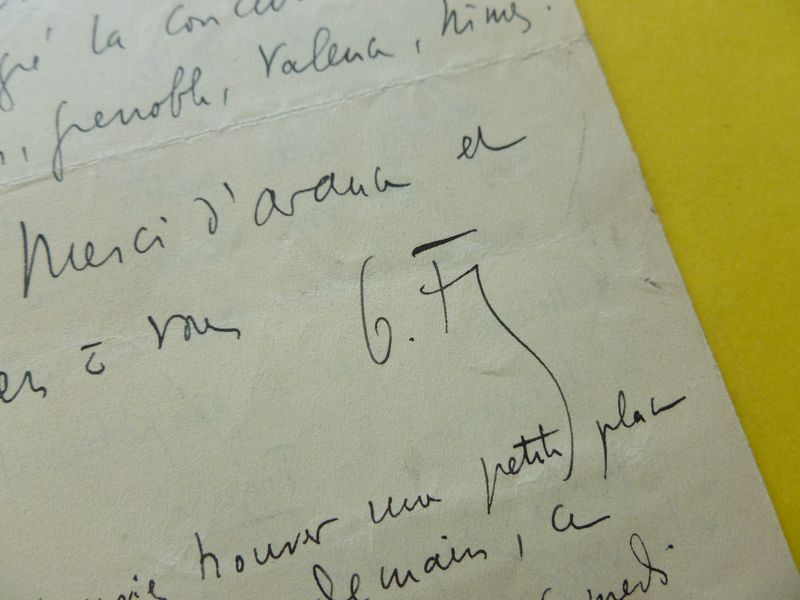 la
, grenoble, Valence, Nimes.
Merci d'avance et
à vous G. F
trouver une petite place
demain, ce
samedi